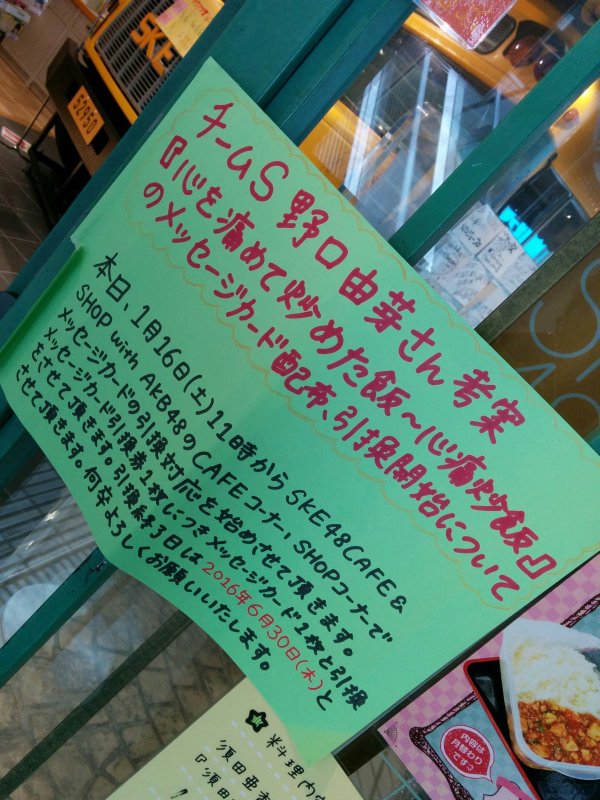 SKE
52950
チームS 野口由芽さん考案
『心を痛めて炒めた飯〜心痛炒飯』
のメッセージカード配布、引換開始について
本日、1月16日(土)11時からSKE48 CAFE &
SHOP with AKB48のCAFEコーナー、SHOPコーナーで
メッセージカードの引換対応を始めさせて頂きます。
メッセージカード引換券1枚につきメッセージカード1枚と引換
をさせて頂きます。引換終了日は2016年6月30日(木)と
させて頂きます。何卒よろしくお願いいたします。
内容は
月替わり
です♪
料理内
須田亜香
『須田